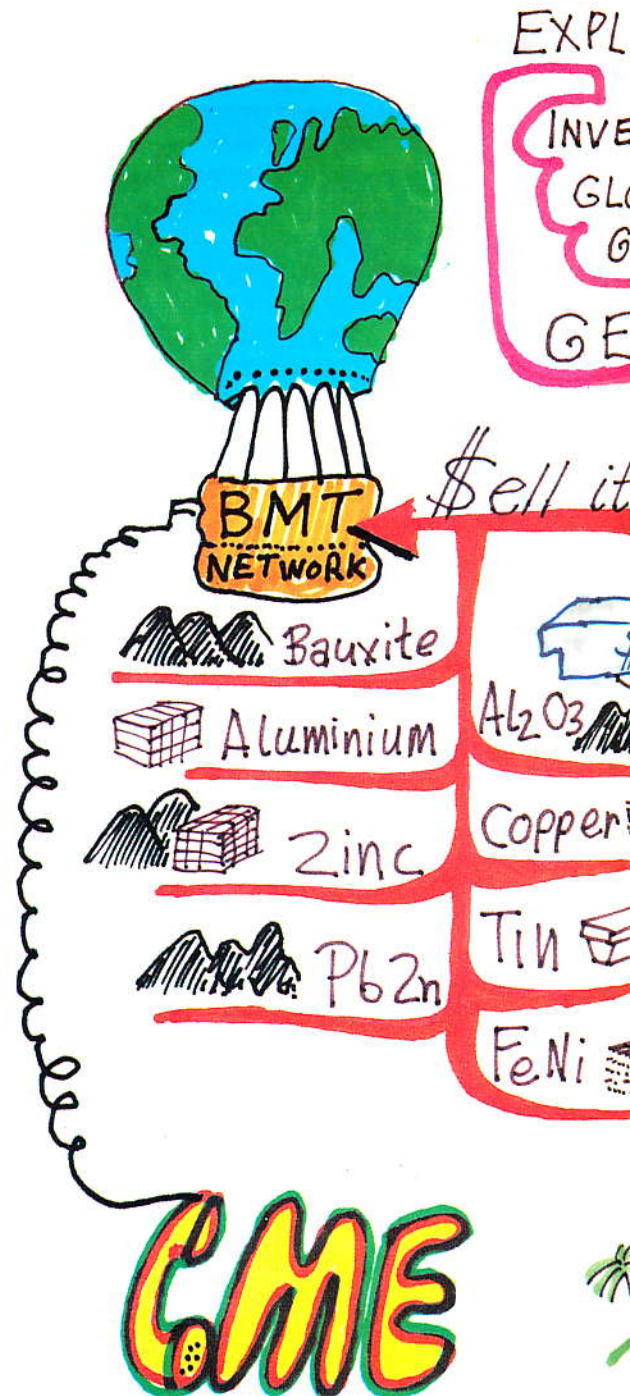 EXPL
INVE
GLO
G
GE
$ell it
BMT
NETWORK
Bauxite
Aluminium
Zinc
PbZn
Al2O3
Copper
Tin
FeNi
CME